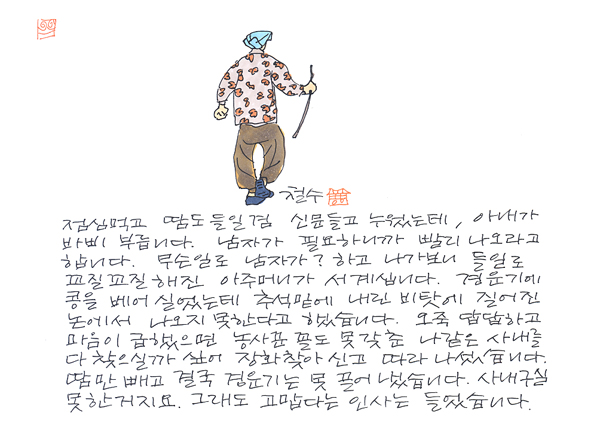 철수
점심먹고 땀도 들일겸 신문들고 누웠는데, 아내가
바삐 부릅니다. 남자가 필요하니까 빨리 나오라고
합니다. 무슨일로 남자가? 하고 나가보니 들일로
꼬질꼬질해진 아주머니가 서계십니다. 경운기에
콩을 베어 실었는데 추석밑에 내린 비탓에 질어진
논에서 나오지 못한다고 했습니다. 오죽 답답하고
마음이 급했으면 농사꾼 꼴도 못갖춘 나같은 사내를
다 찾으실까 싶어 장화찾아 신고 따라 나섰습니다.
땀만 빼고 결국 경운기는 못 끌어 냈습니다. 사내구실
못한거지요. 그래도 고맙다는 인사는 들었습니다.